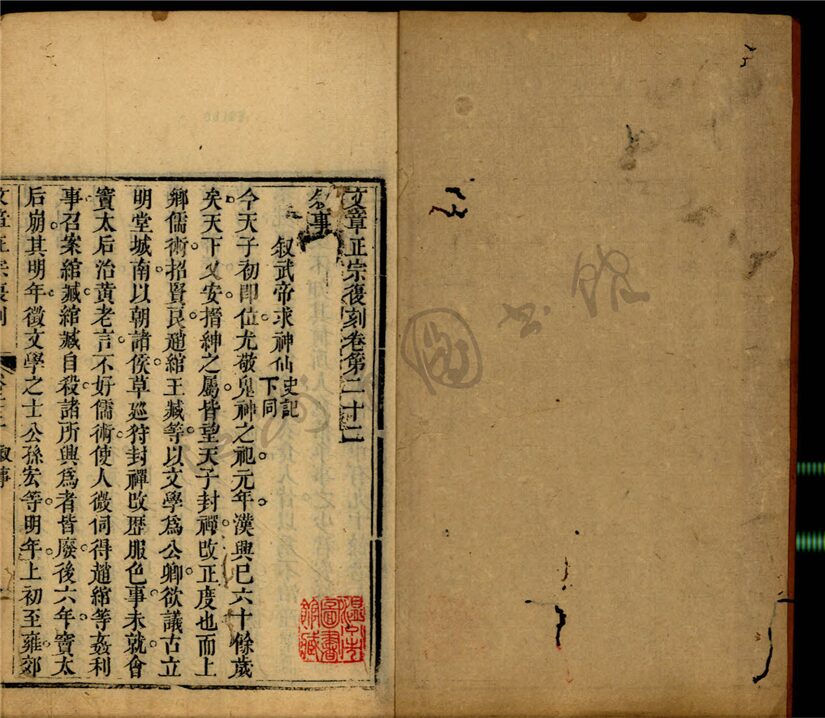 文章正宗復刻卷第二十二
叙事
叙武帝求神仙史記下同
今天子初即位尤敬鬼神之祀元年漢興巳六十餘歲
矣天下乂安搢紳之屬皆望天子封禪改正度也而上
鄉儒術招賢良趙綰王臧等以文學爲公卿欲議古立
明堂城南以朝諸侯草廵狩封禪改歷服色事未就會
竇太后治黃老言不好儒術使人微伺得趙綰等姦利
事召案綰臧綰臧自殺諸所興爲者皆廢後六年竇太
后崩其明年徵文學之士公孫宏等明年上初至雍郊
文章正宗復刻
叙事
圖書館藏